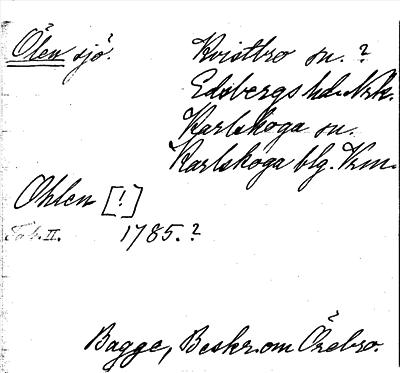 Ölen sjö. Kvistbro sn. ?
Edsbergs hd. Nrk.
Karlskoga sn.
Karlskoga blg. Vrm.
Ohlen [!]
Tab. II. 1785. ?
Bagge, Beskr. om Örebro.